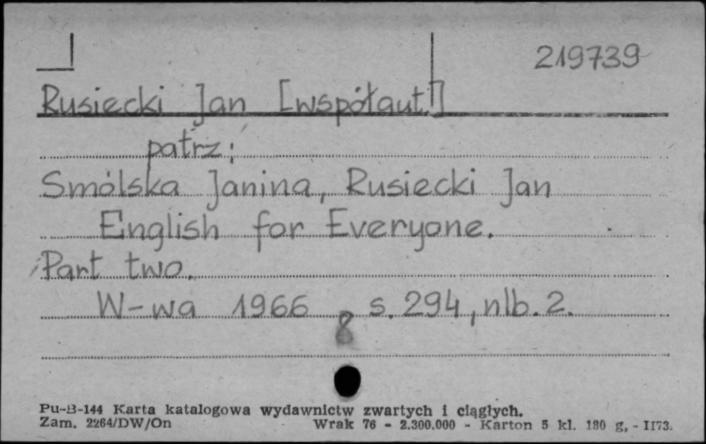 219739
Rusiecki Jan [współaut.]
patrz:
Smólska Janina, Rusiecki Jan
English for Everyone.
Part two.
W-wa 1966 8 s. 294, nlb. 2.
Pu-B-144 Karta katalogowa wydawnictw zwartych i ciągłych.
Zam. 2264/DW/On Wrak 76 - 2.300.000 - Karton 5 kl. 180 g. - II73.